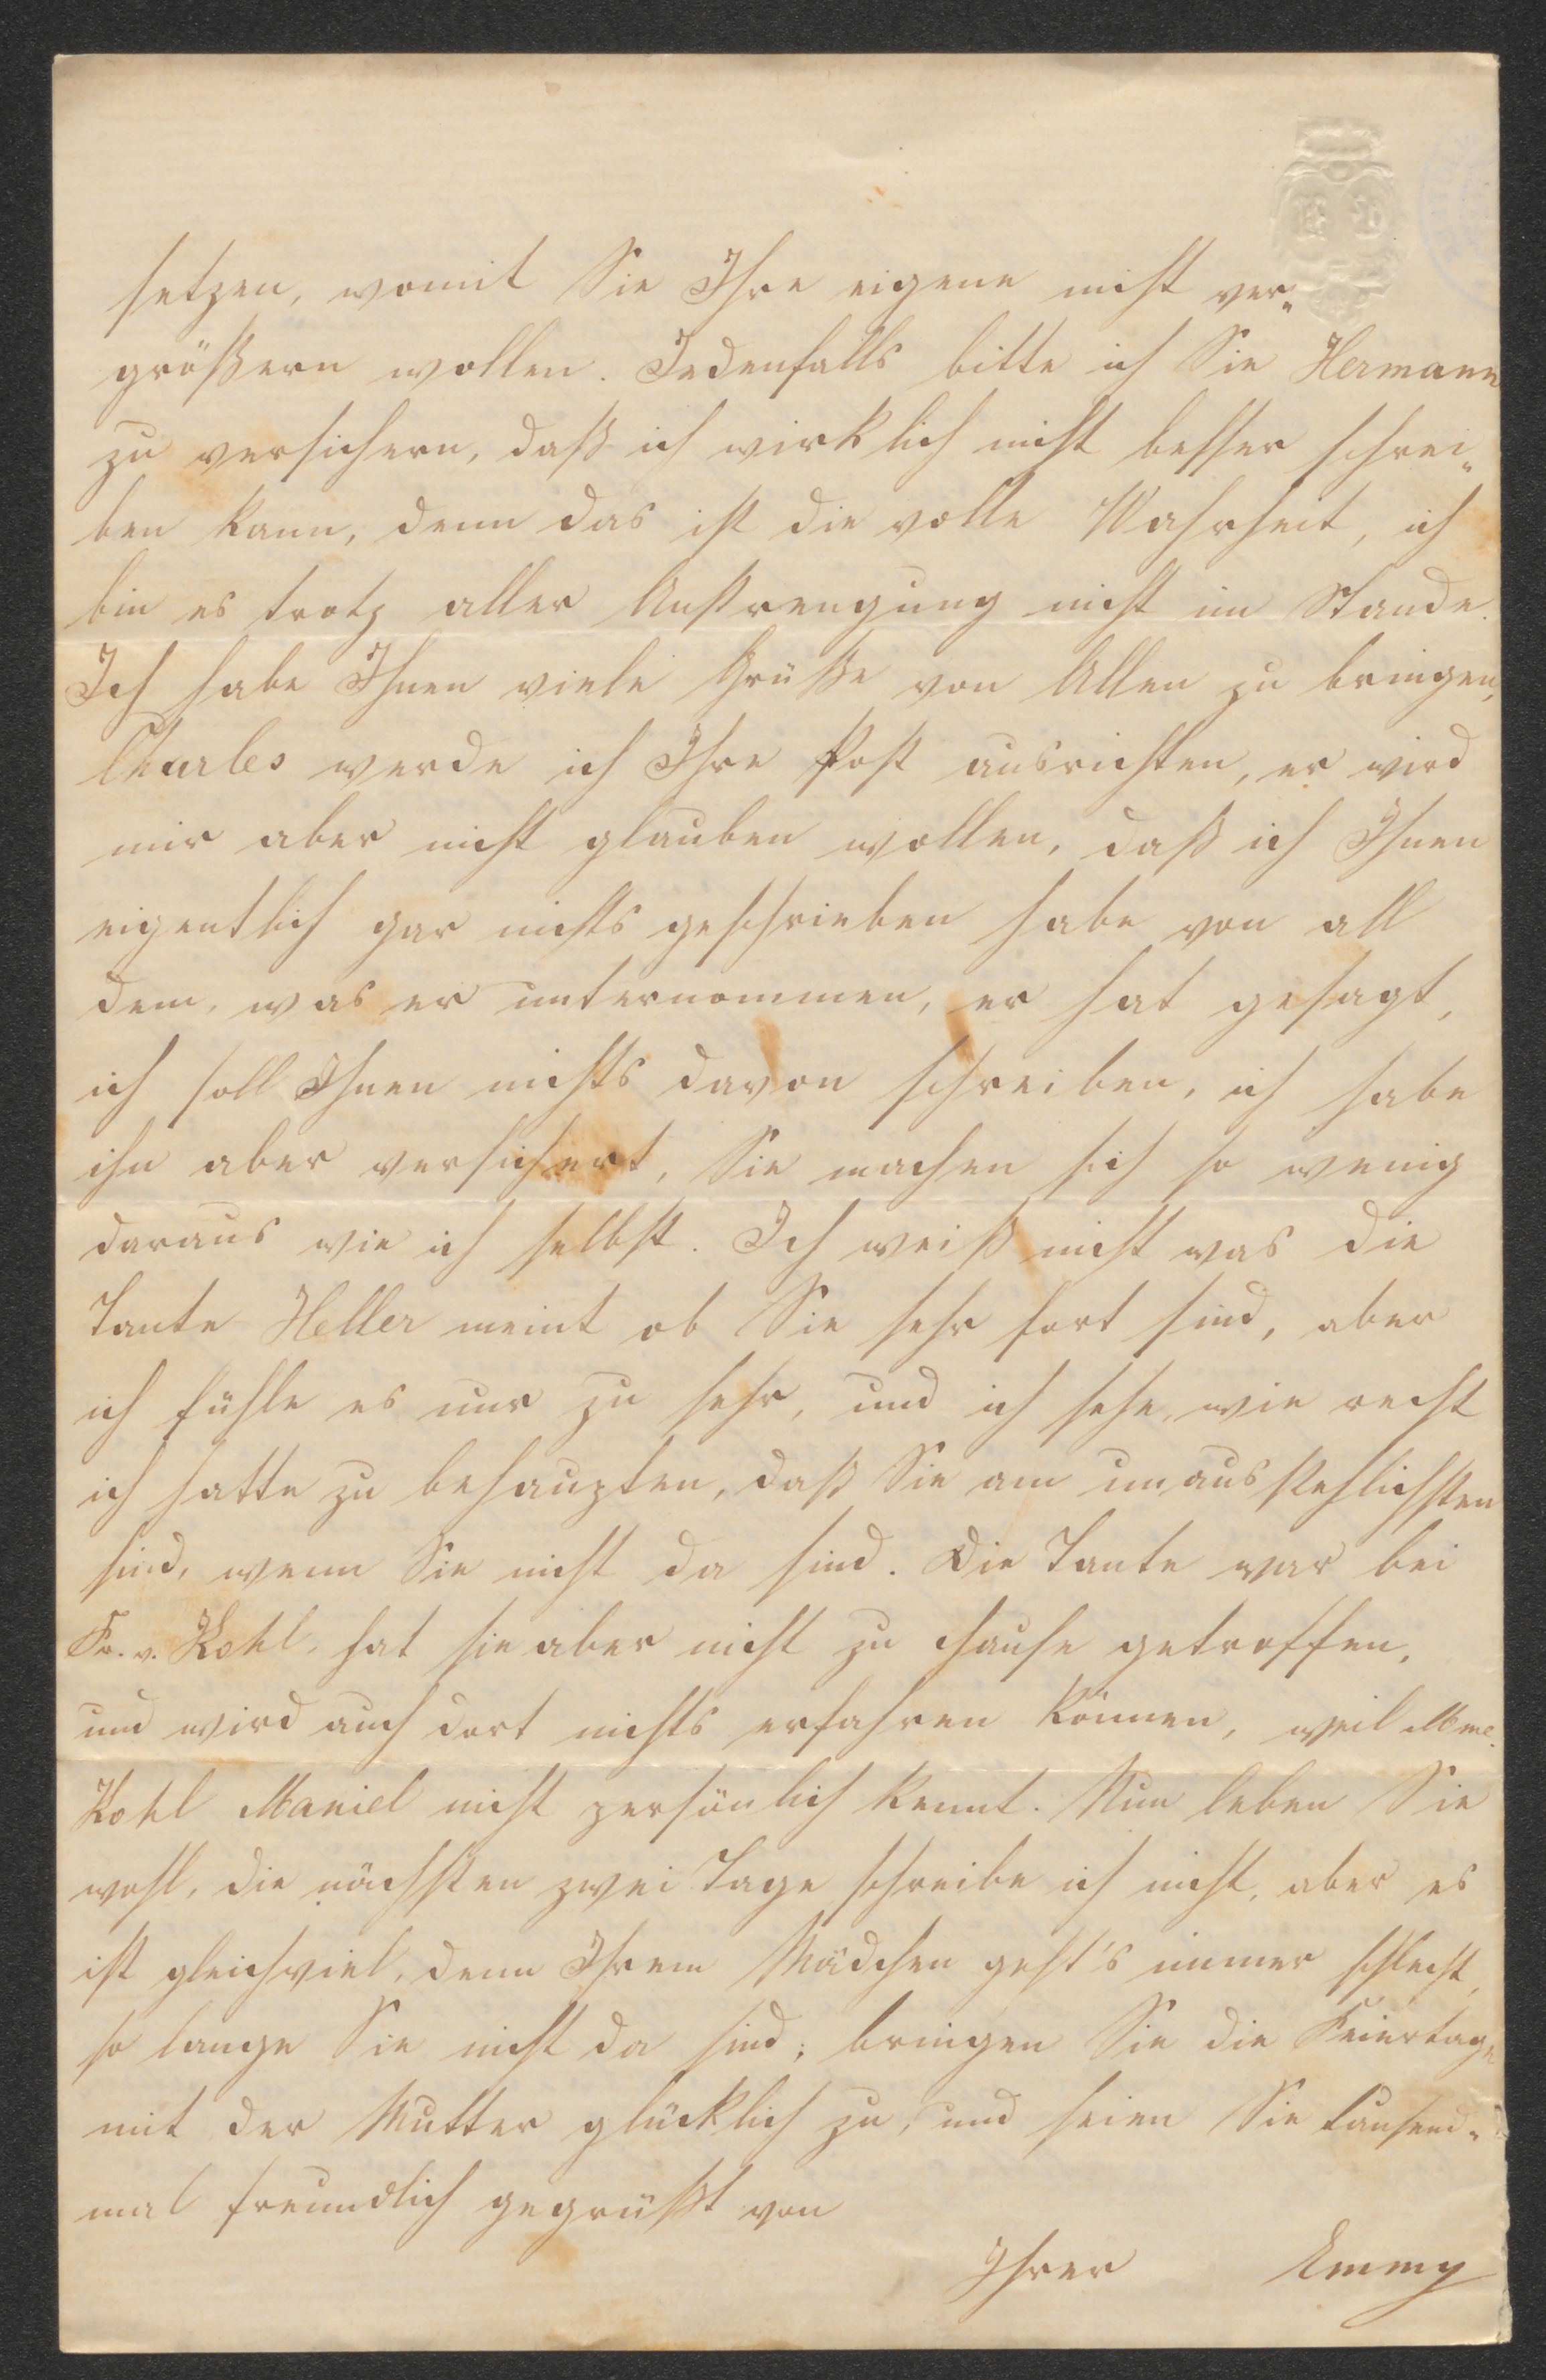 setzen, womit Sie Ihre eigene nicht ver„
größern wollen. Jedenfalls bitte ich Sie Hermann
zu versichern, daß ich wirklich nicht besser schrei„
ben kann, denn das ist die volle Wahrheit, ich
bin es trotz aller Anstrengung nicht im Stande.
Ich habe Ihnen viele Grüße von Allen zu bringen,
Charles werde ich Ihre Post ausrichten, er wird
mir aber nicht glauben wollen, daß ich Ihnen
eigentlich gar nichts geschrieben habe von all
dem, was er unternommen, er hat gesagt,
ich soll Ihnen nichts davon schreiben, ich habe
ihn aber versichert, Sie machen sich so wenig
daraus wie ich selbst. Ich weiß nicht was die
Tante Heller meint ob Sie sehr fort sind, aber
ich fühle es nur zu sehr, und ich sehe, wie recht
ich hatte zu behaupten, daß Sie am unausstehlichsten
sind, wenn Sie nicht da sind. Die Tante war bei
Fr. v. Kohl, hat sie aber nicht zu Hause getroffen,
und wird auch dort nichts erfahren können, weil Mme.
Kohl Maniel nicht persönlich kennt. Nun leben Sie
wohl, die nächsten zwei Tage schreibe ich nicht, aber es
ist gleichviel, denn Ihrem Mädchen geht's immer schlecht,
so lange Sie nicht da sind; bringen Sie die Feiertage
mit der Mutter glücklich zu, und seien Sie tausend„
mal freundlich gegrüßt von
Ihrer Emmy